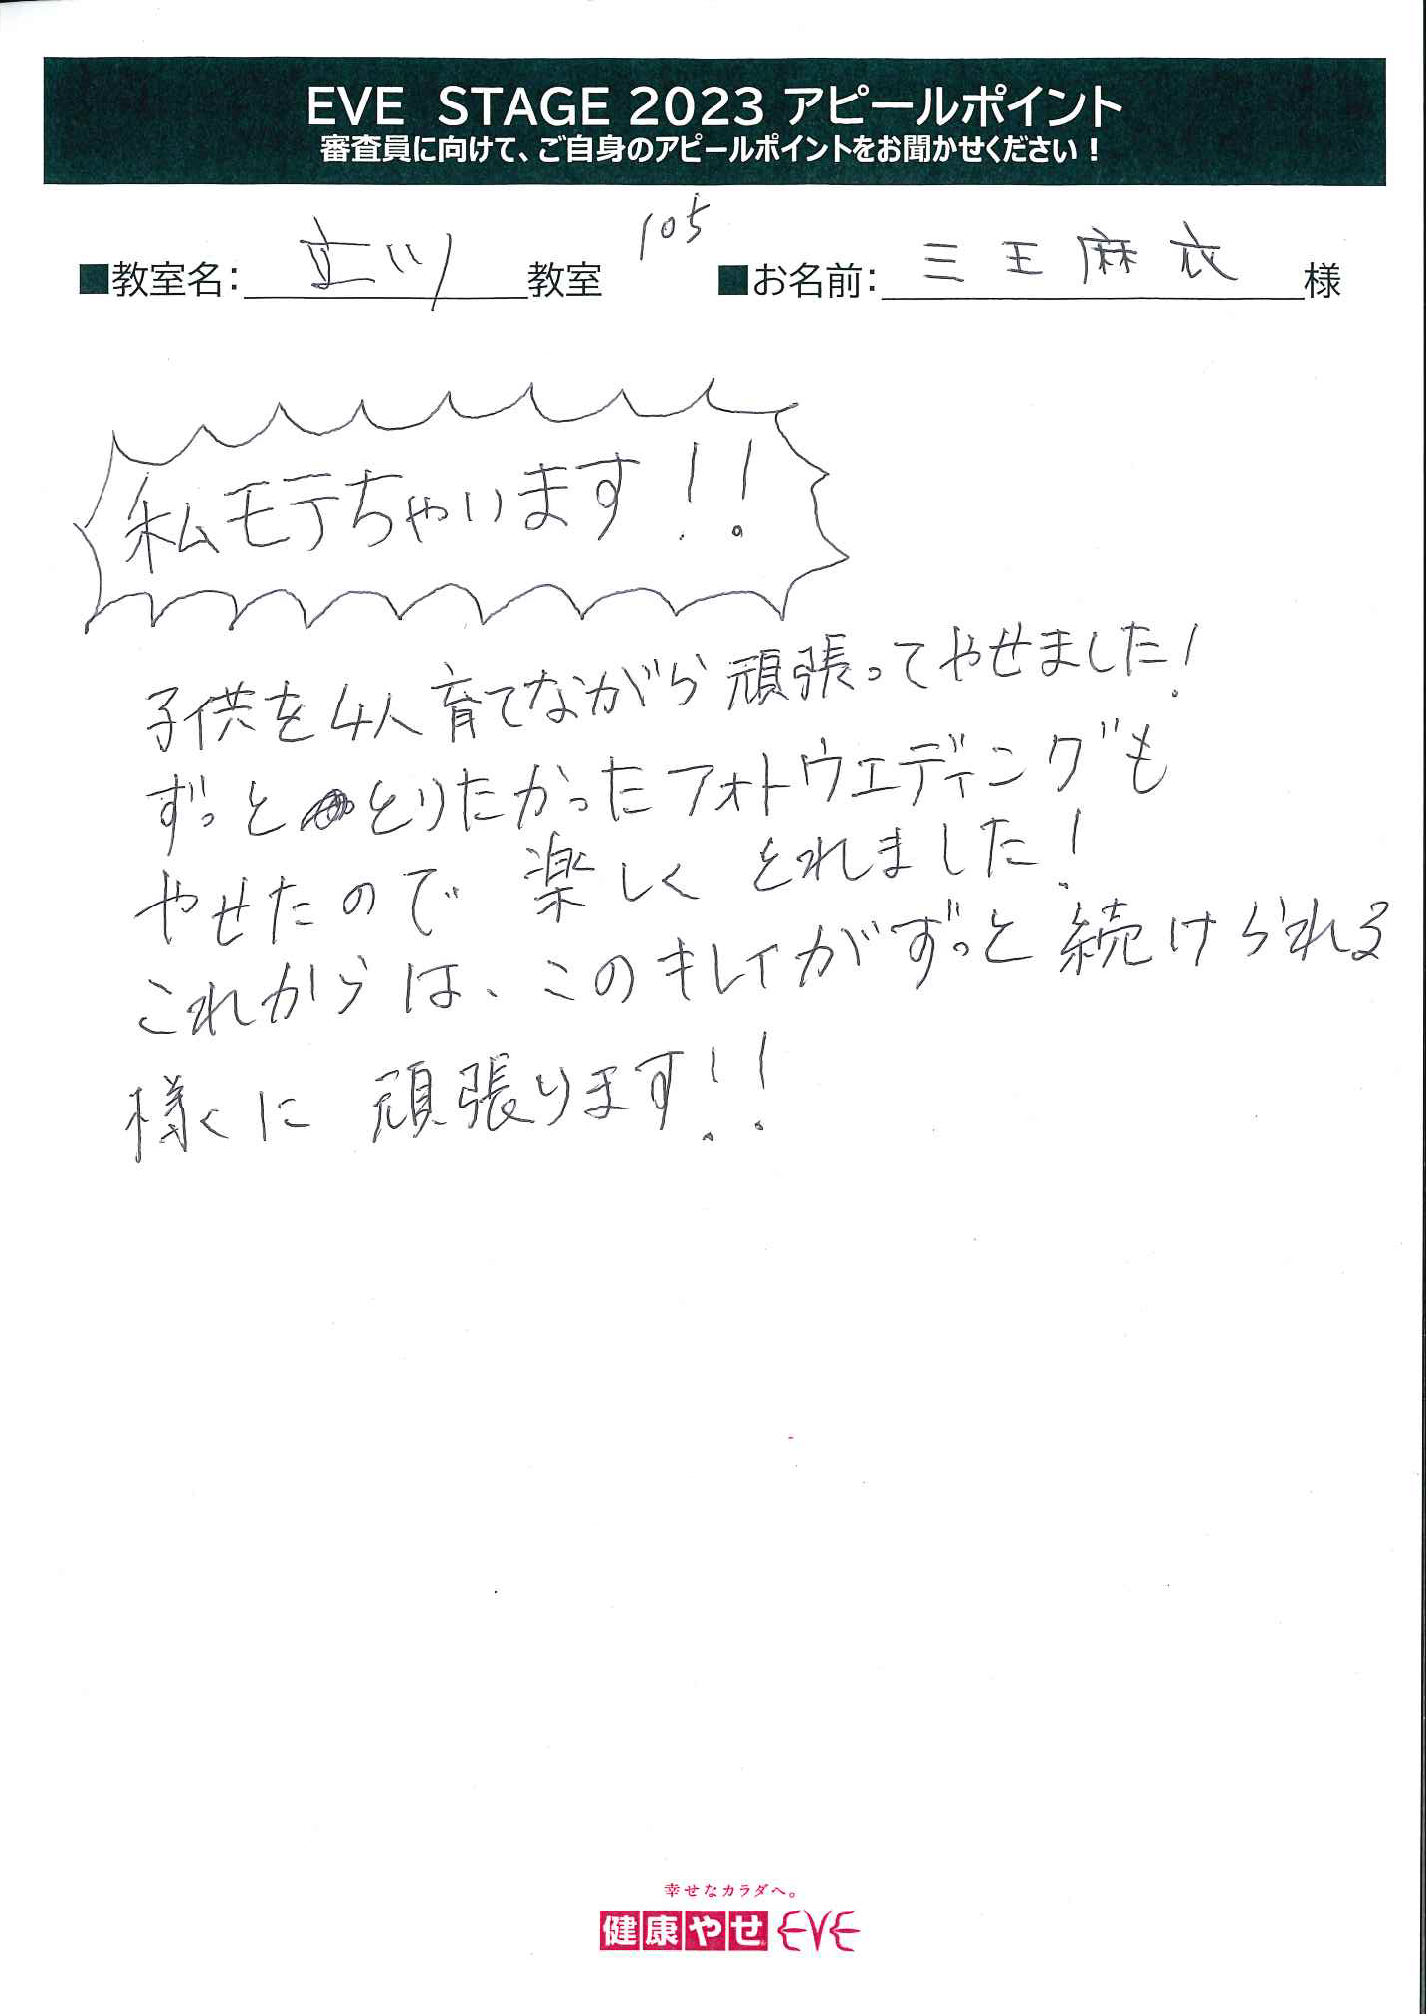 EVE STAGE 2023 アピールポイント
審査員に向けて、ご自身のアピールポイントをお聞かせください！
105
■教室名：立川教室 ■お名前：三王麻衣様
私モテちゃいます！！
子供を4人育てながら頑張ってやせました！
ずっととりたかったフォトウエディングも
やせたので楽しくとれました！
これからは、このキレイがずっと続けられる
様に頑張ります！！
幸せなカラダへ。
健康やせ EVE